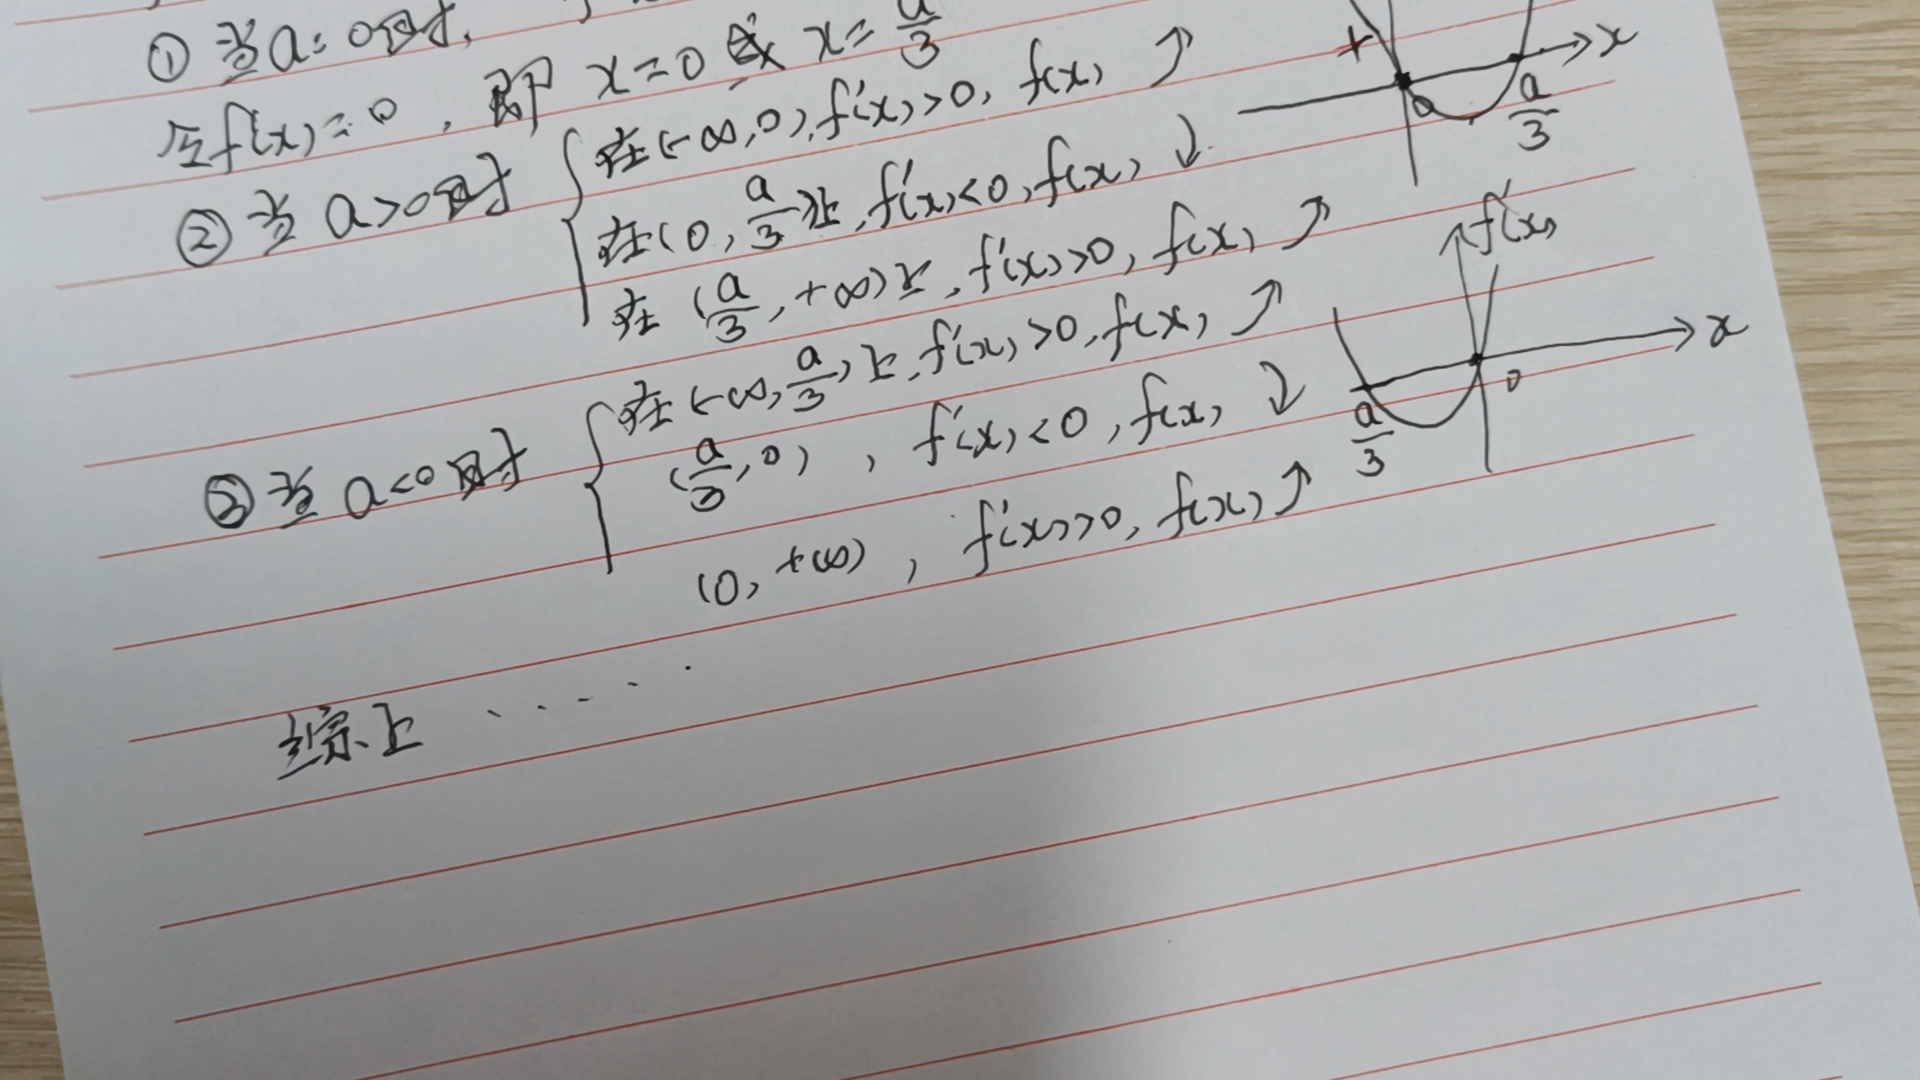 ① 当a=0时,
令f'(x)=0, 即 x=0 或 x=a/3
② 当 a>0时 { 在(-∞,0), f'(x)>0, f(x) ↗
在(0, a/3)上, f'(x)<0, f(x) ↘
在 (a/3, +∞)上, f'(x)>0, f(x) ↗
③ 当 a<0时 { 在(-∞, a/3)上, f'(x)>0, f(x) ↗
(a/3, 0), f'(x)<0, f(x) ↘
(0, +∞), f'(x)>0, f(x) ↗
综上 ......
+
x
0
a/3
f'(x)
x
0
a/3